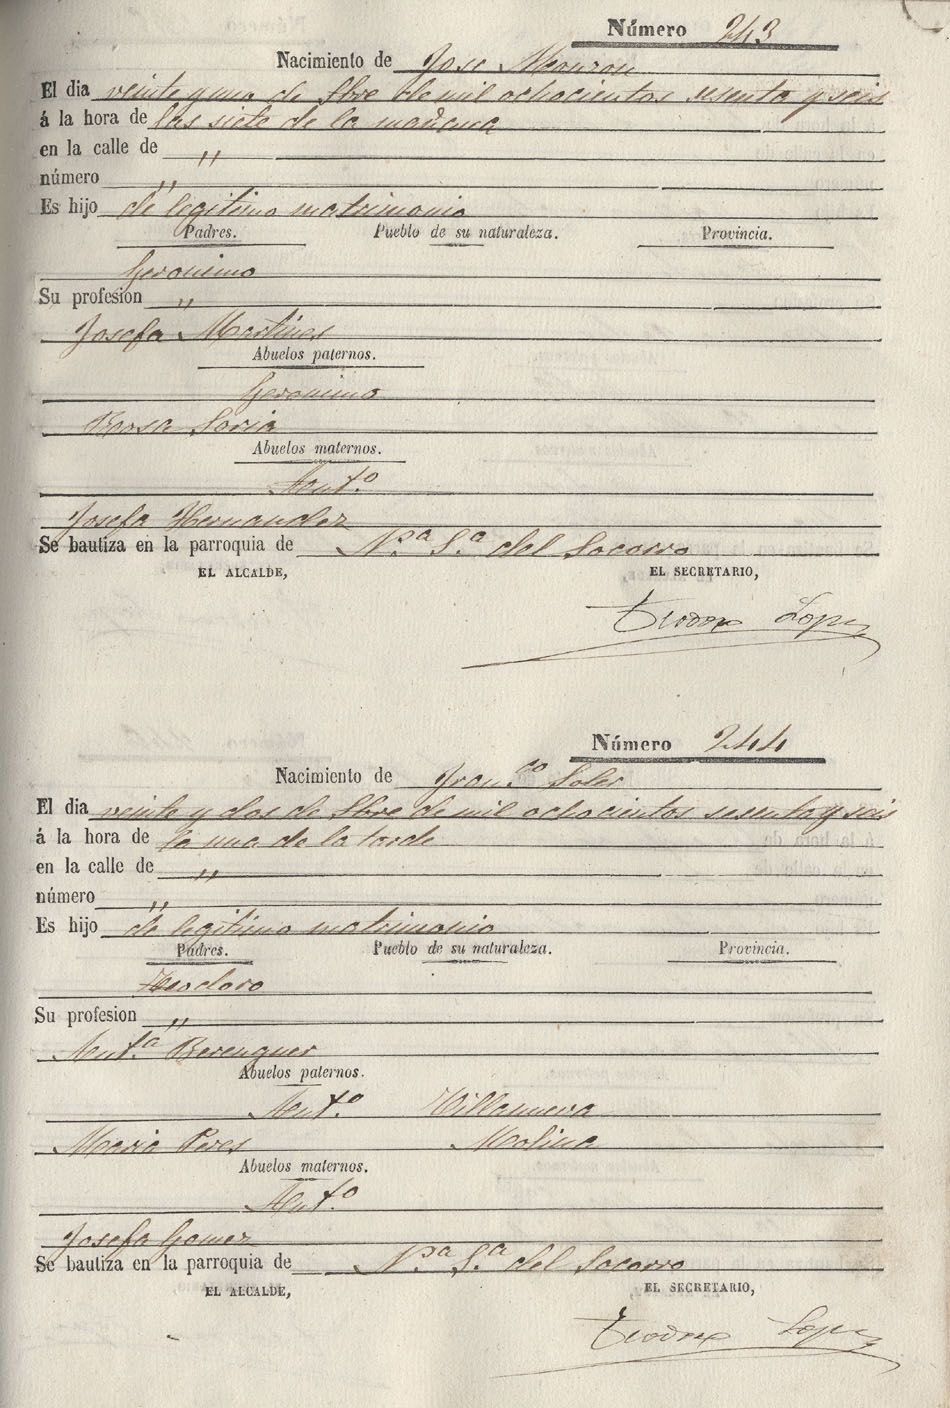 Número 243
Nacimiento de Jose Monzon
El dia veinte y uno de 8bre de mil ochocientos sesenta y seis
á la hora de las siete de la mañana
en la calle de "
número "
Es hijo de legitimo matrimonio
Padres. Pueblo de su naturaleza. Provincia.
Geronimo
Su profesion "
Josefa Martines
Abuelos paternos.
Geronimo
Rosa Soria
Abuelos maternos.
Ant.º
Josefa Hernandez
Se bautiza en la parroquia de N.ra S.ra del Socorro
EL ALCALDE, EL SECRETARIO,
Teodoro Lopez
Número 244
Nacimiento de Fran.co Soler
El dia veinte y dos de 8bre de mil ochocientos sesenta y seis
á la hora de la una de la tarde
en la calle de "
número "
Es hijo de legitimo matrimonio
Padres. Pueblo de su naturaleza. Provincia.
Teodoro
Su profesion "
Ant.a Berenguer
Abuelos paternos.
Ant.º Villanueva
Maria Peres Molina
Abuelos maternos.
Ant.º
Josefa Gomez
Se bautiza en la parroquia de N.ra S.ra del Socorro
EL ALCALDE, EL SECRETARIO,
Teodoro Lopez